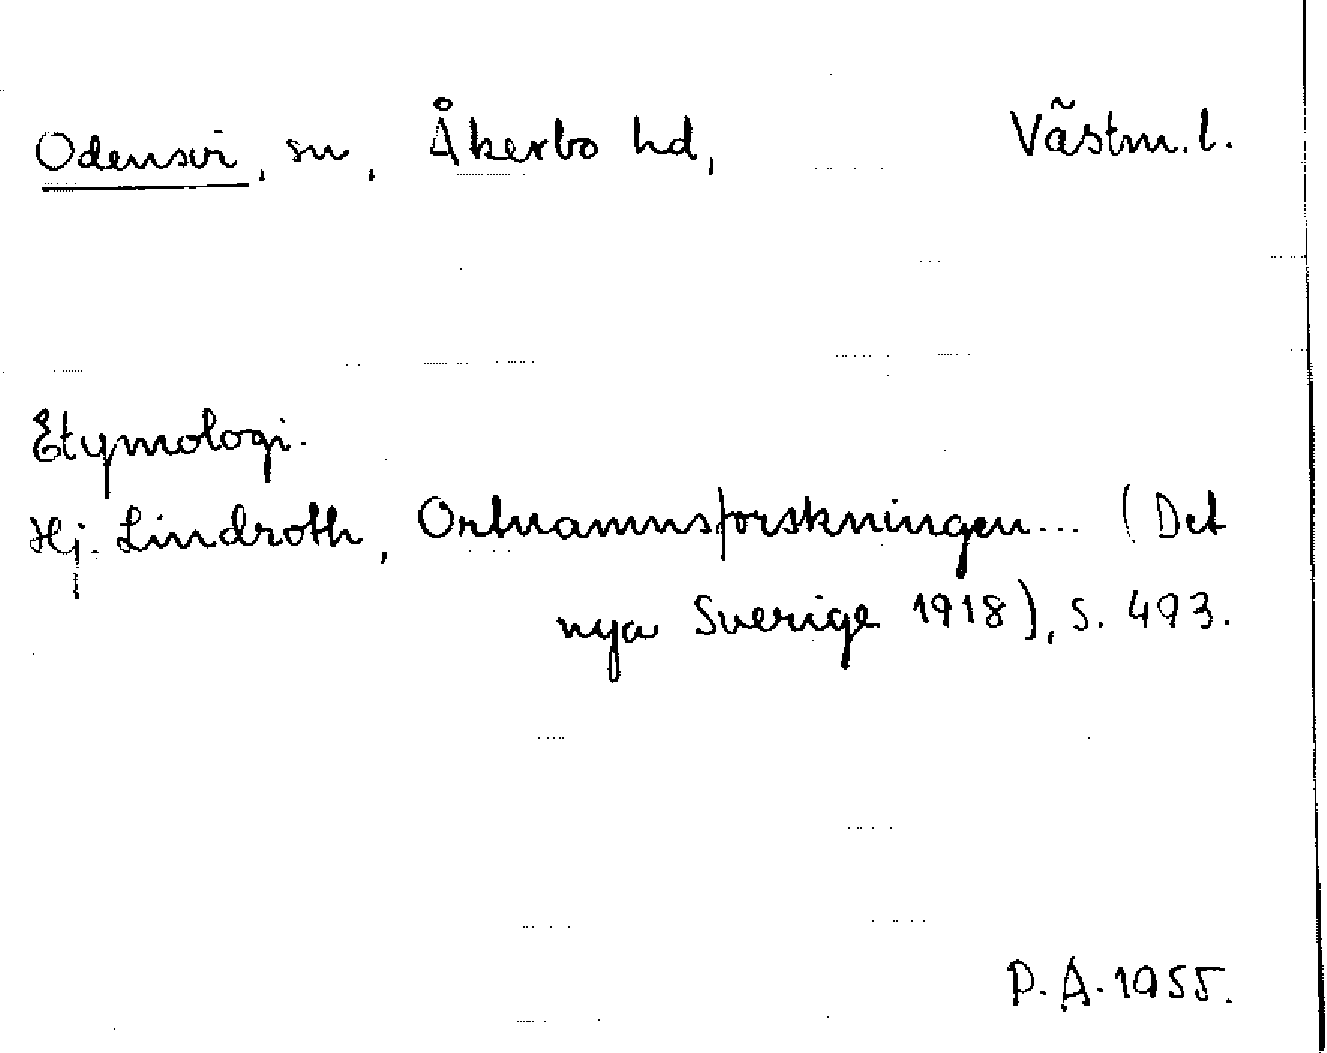 Odensvi, sn, Åkerbo hd, Västm. l.
Etymologi.
Hj. Lindroth, Ortnamnsforskningen... (Det
nya Sverige 1918), s. 493.
P. A. 1955.